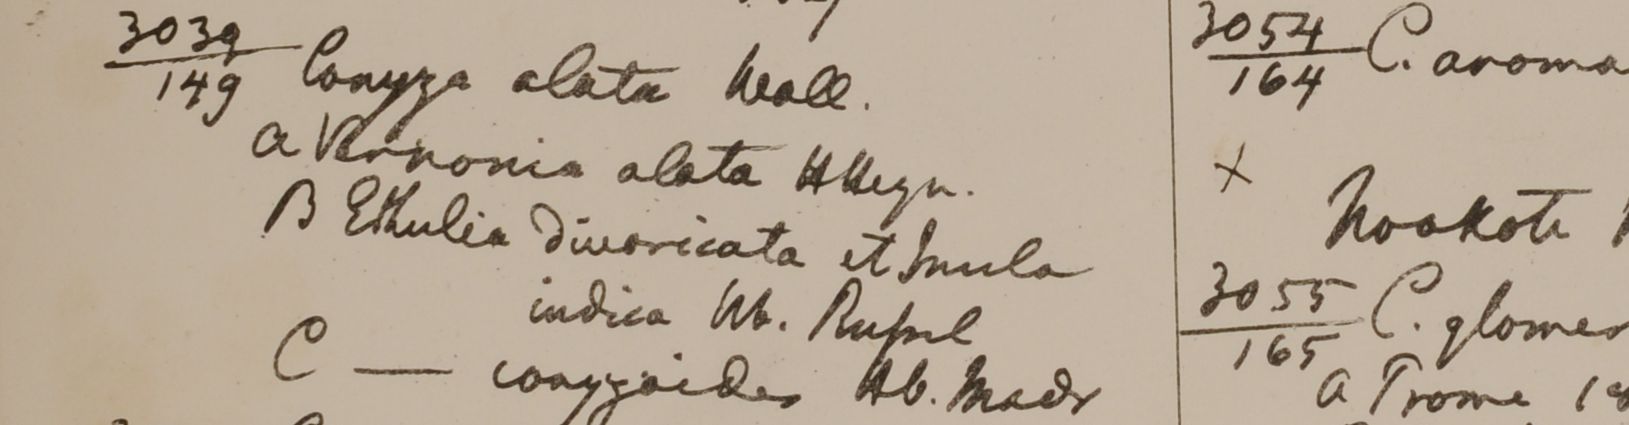 3039
149 Conyza alata Wall.
a Vernonia alata HHeyn.
B Ethulia divaricata et Inula
indica Hb. Russel
C — conyzoides Hb. Madr
3054
164 C. aroma
x
Noakote
3055
165 C. glomer
a Prome